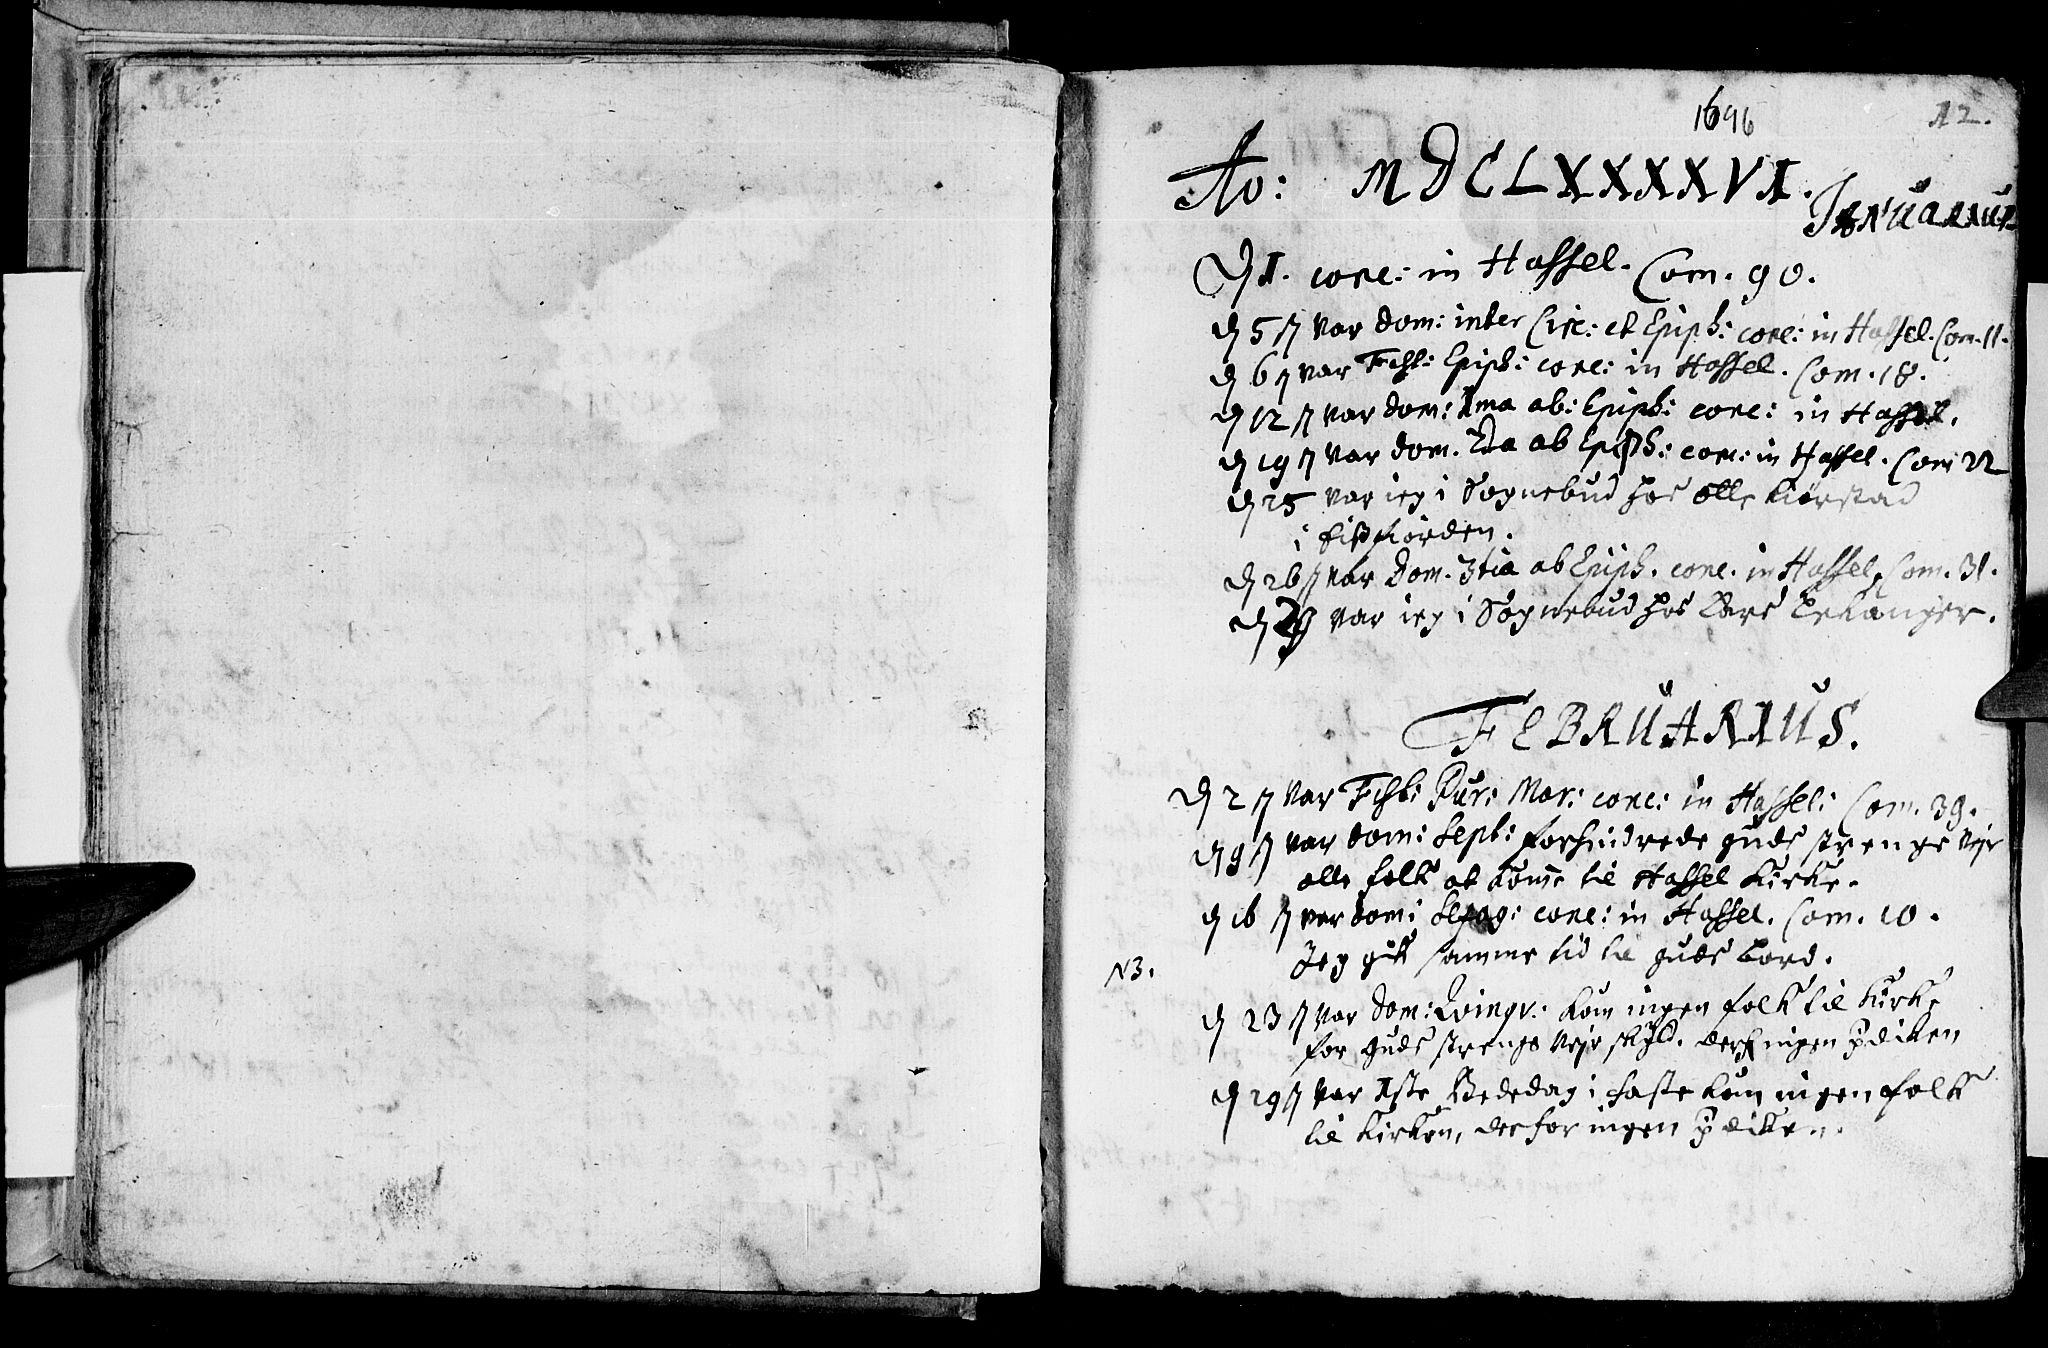 1696
12.
Ao: MDCLXXXXVI.
Januarius
D 1. conc: in Hassel. Com. 90.
D 5 var dom: inter Circ: et Epiph: conc: in Hassel. Com. 11.
D 6 var Fest: Epiph: conc: in Hassel. Com. 18.
D 12 var dom: 1ma ab: Epiph: conc: in Hassel.
D 19 var dom. 2da ab Epiph: conc: in Hassel. Com 22
D 25 var ieg i Sognebud hos olle
i
D 26 var Dom. 3tia ab Epiph. conc. in Hassel, Com. 31.
D 29 var ieg i Sognebud hos Lars
FEBRUARIUS.
D 2 var Fest: Pur: Mar: conc: in Hassel: Com. 39.
D 9 var dom: Sept: forhindrede guds strenge Vejr
alle folk at komme til Hassel Kirke.
D 16 var dom: Sexag: conc: in Hassel. Com. 10.
NB.
Jeg gik samme tid til guds bord.
D 23 var dom: Qvinqv: kom ingen folk til Kirke
for guds strenge Vejr skyld. derf ingen pdiken
D 29 var 1ste Bededag i faste kom ingen folk
til Kirken, derfor ingen pdiken.